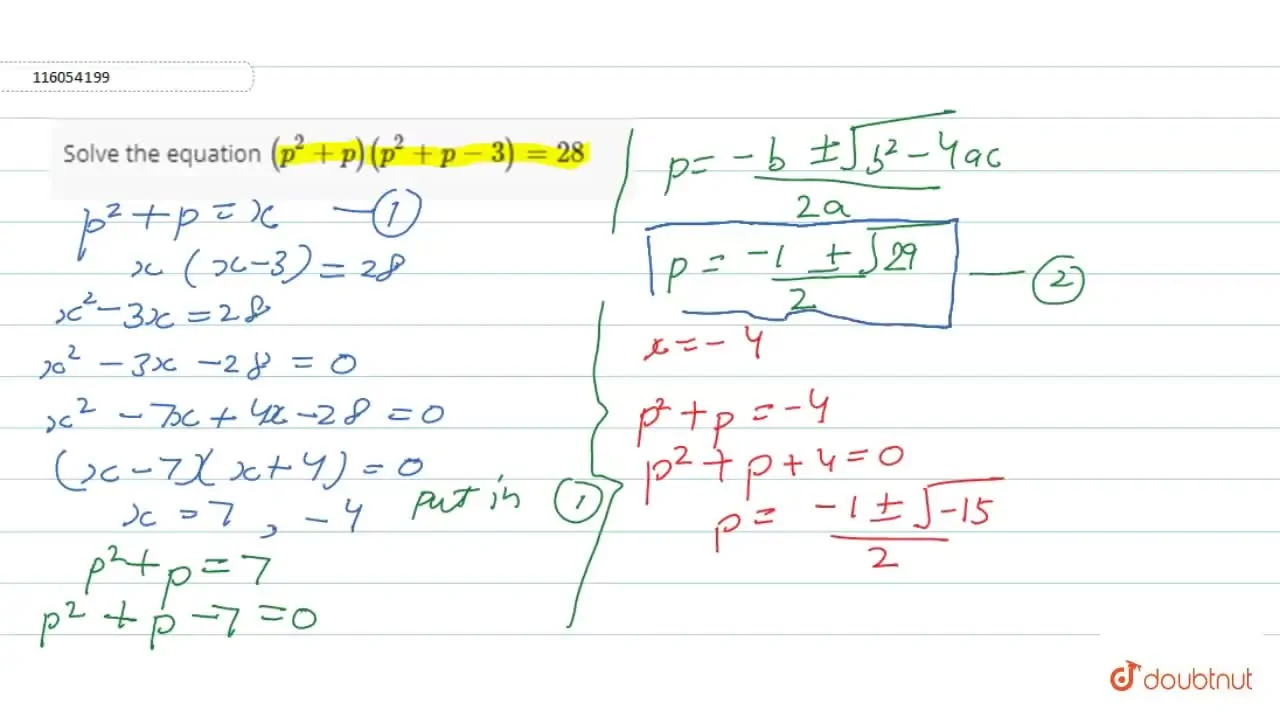 116054199
Solve the equation (p² + p)(p² + p − 3) = 28
p² + p = x — ①
x (x − 3) = 28
x² − 3x = 28
x² − 3x − 28 = 0
x² − 7x + 4x − 28 = 0
(x − 7)(x + 4) = 0
x = 7 , − 4 put in ①
p² + p = 7
p² + p − 7 = 0
p = (−b ± √(b² − 4ac)) / 2a
p = (−1 ± √29) / 2 — ②
x = − 4
p² + p = − 4
p² + p + 4 = 0
p = (−1 ± √−15) / 2
doubtnut